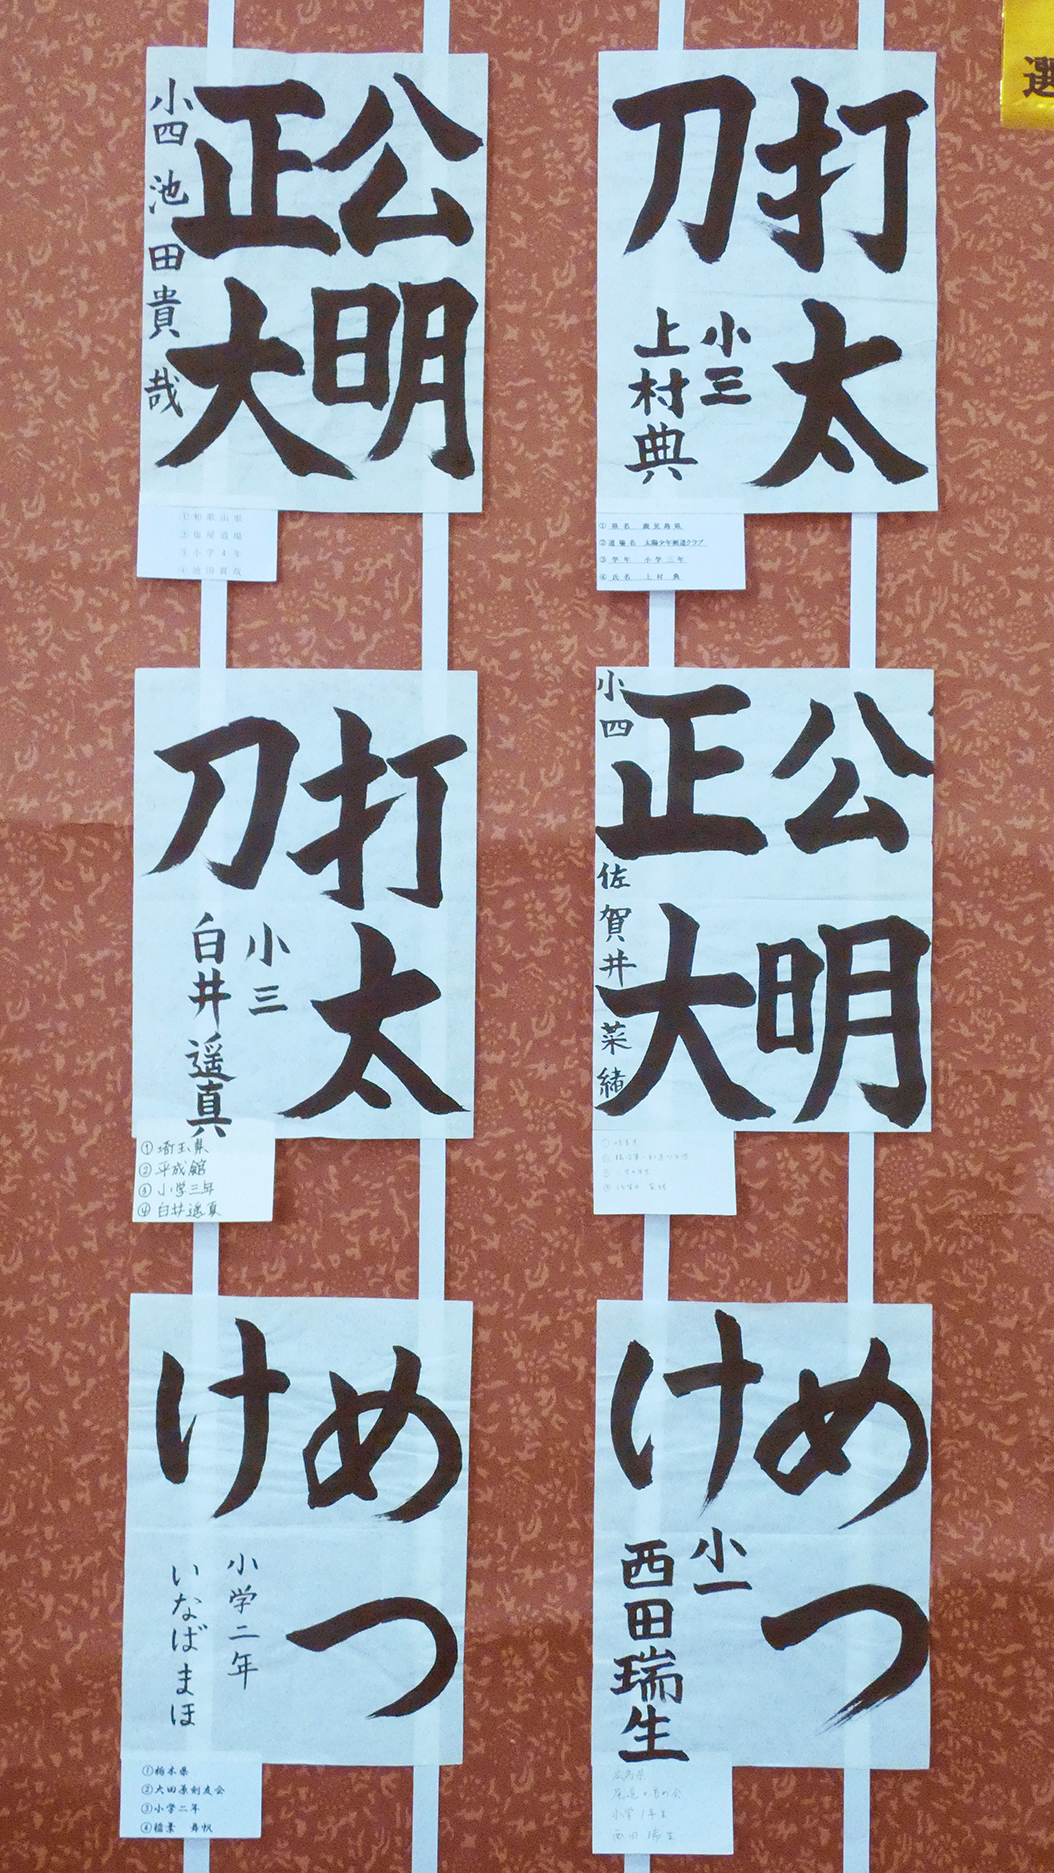 選
公明
正大
小四 池田貴哉
①和歌山県
②塩屋道場
③小学4年
④池田貴哉
打太
刀
小三
上村典
①県名 鹿児島県
②道場名 太陽少年剣道クラブ
③学年 小学三年
④氏名 上村典
打太
刀
小三
白井遥真
①埼玉県
②平成館
③小学三年
④白井遥真
公明
正大
小四 佐賀井菜緒
めつ
け
小学二年
いなばまほ
①栃木県
②大田原剣友会
③小学二年
④稲葉 舞帆
めつ
け
小一
西田瑞生
広島県
小学1年生
西田瑞生